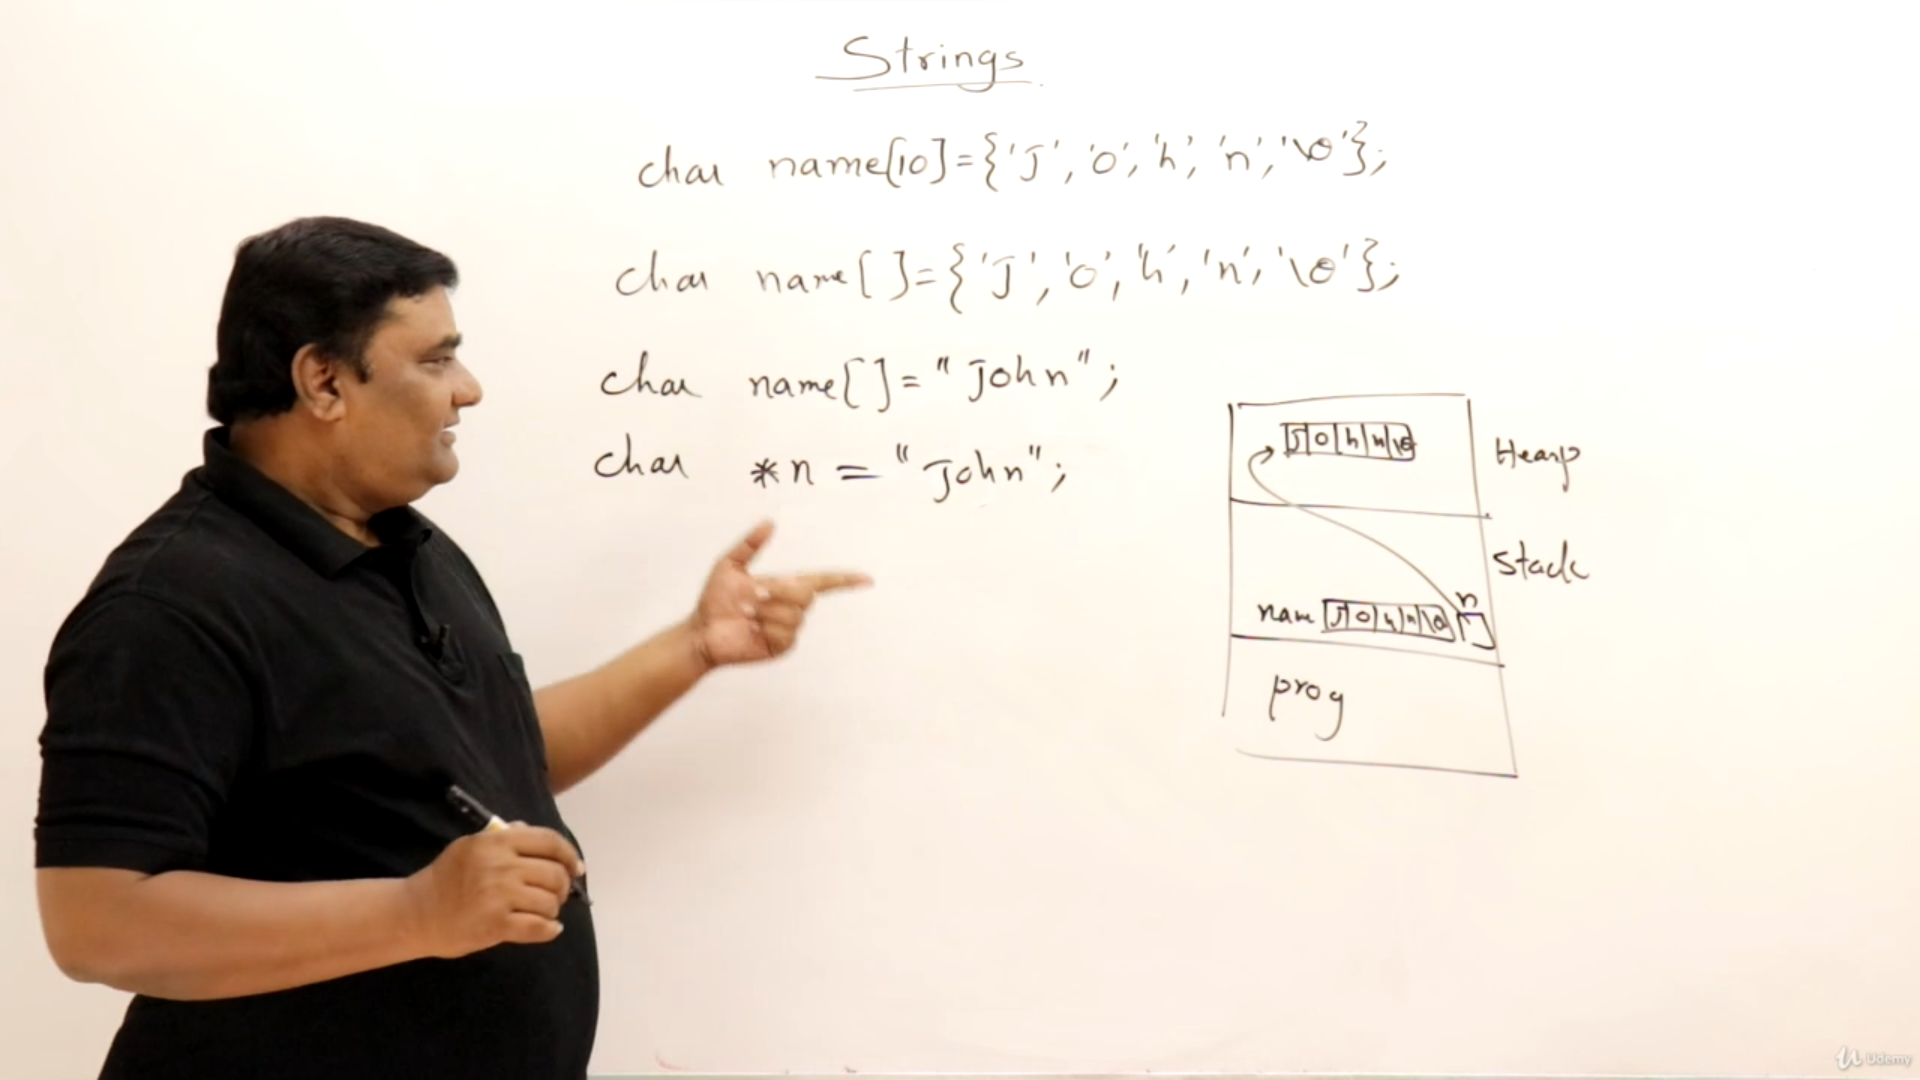 Strings
char name[10]={'J','o','h','n','\0'};
char name[]={'J','o','h','n','\0'};
char name[]="John";
char *n = "John";
J o h n \0
Heap
Stack
n
name J o h n \0
prog
Udemy